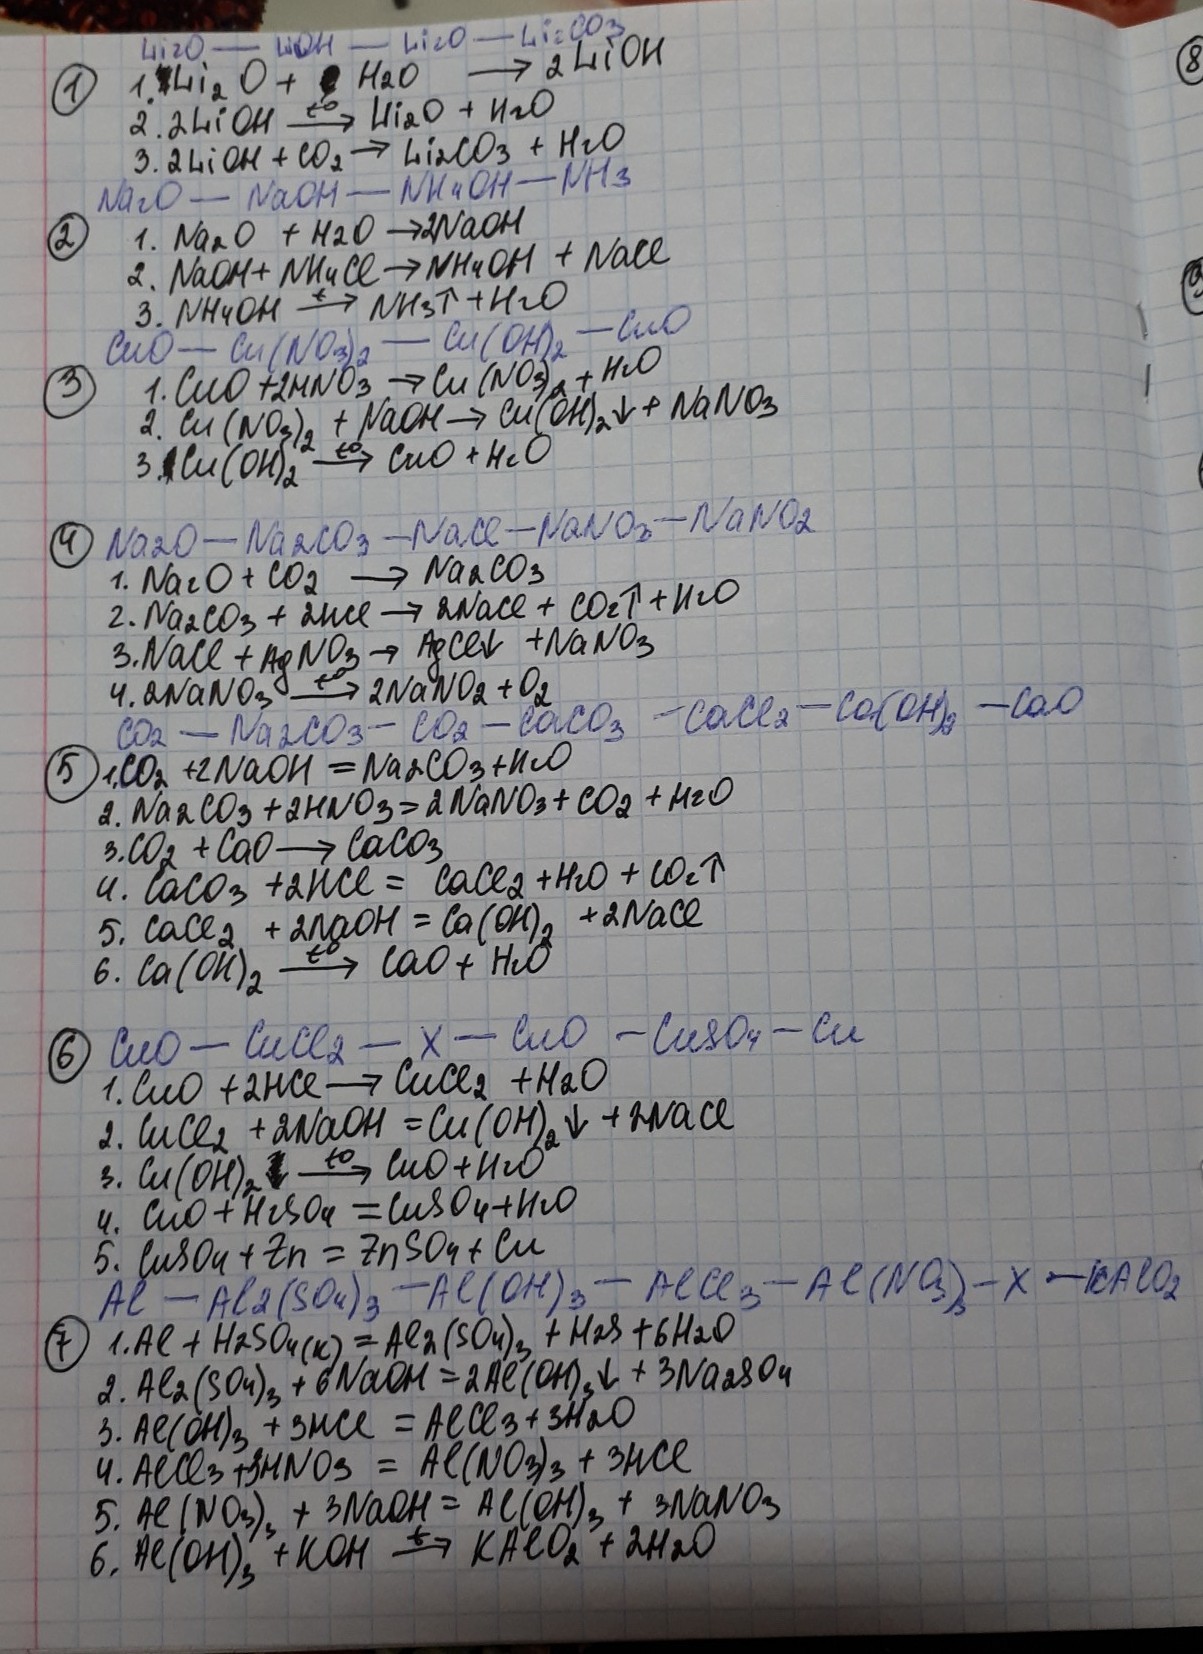 Li2O — LiOH — Li2O — Li2CO3
① 1. Li2O + H2O → 2LiOH
2. 2LiOH t0→ Li2O + H2O
3. 2LiOH + CO2 → Li2CO3 + H2O
Na2O — NaOH — NH4OH — NH3
② 1. Na2O + H2O → 2NaOH
2. NaOH + NH4Cl → NH4OH + NaCl
3. NH4OH t→ NH3↑ + H2O
CuO — Cu(NO3)2 — Cu(OH)2 — CuO
③ 1. CuO + 2HNO3 → Cu(NO3)2 + H2O
2. Cu(NO3)2 + NaOH → Cu(OH)2↓ + NaNO3
3. Cu(OH)2 t0→ CuO + H2O
④ Na2O — Na2CO3 — NaCl — NaNO3 — NaNO2
1. Na2O + CO2 → Na2CO3
2. Na2CO3 + 2HCl → 2NaCl + CO2↑ + H2O
3. NaCl + AgNO3 → AgCl↓ + NaNO3
4. 2NaNO3 t0→ 2NaNO2 + O2
CO2 — Na2CO3 — CO2 — CaCO3 — CaCl2 — Ca(OH)2 — CaO
⑤ 1. CO2 + 2NaOH = Na2CO3 + H2O
2. Na2CO3 + 2HNO3 = 2NaNO3 + CO2 + H2O
3. CO2 + CaO → CaCO3
4. CaCO3 + 2HCl = CaCl2 + H2O + CO2↑
5. CaCl2 + 2NaOH = Ca(OH)2 + 2NaCl
6. Ca(OH)2 t0→ CaO + H2O
⑥ CuO — CuCl2 — X — CuO — CuSO4 — Cu
1. CuO + 2HCl → CuCl2 + H2O
2. CuCl2 + 2NaOH = Cu(OH)2↓ + 2NaCl
3. Cu(OH)2 t0→ CuO + H2O
4. CuO + H2SO4 = CuSO4 + H2O
5. CuSO4 + Zn = ZnSO4 + Cu
Al — Al2(SO4)3 — Al(OH)3 — AlCl3 — Al(NO3)3 — X — KAlO2
⑦ 1. Al + H2SO4(к) = Al2(SO4)3 + H2S + 6H2O
2. Al2(SO4)3 + 6NaOH = 2Al(OH)3↓ + 3Na2SO4
3. Al(OH)3 + 3HCl = AlCl3 + 3H2O
4. AlCl3 + 3HNO3 = Al(NO3)3 + 3HCl
5. Al(NO3)3 + 3NaOH = Al(OH)3 + 3NaNO3
6. Al(OH)3 + KOH t→ KAlO2 + 2H2O
⑧